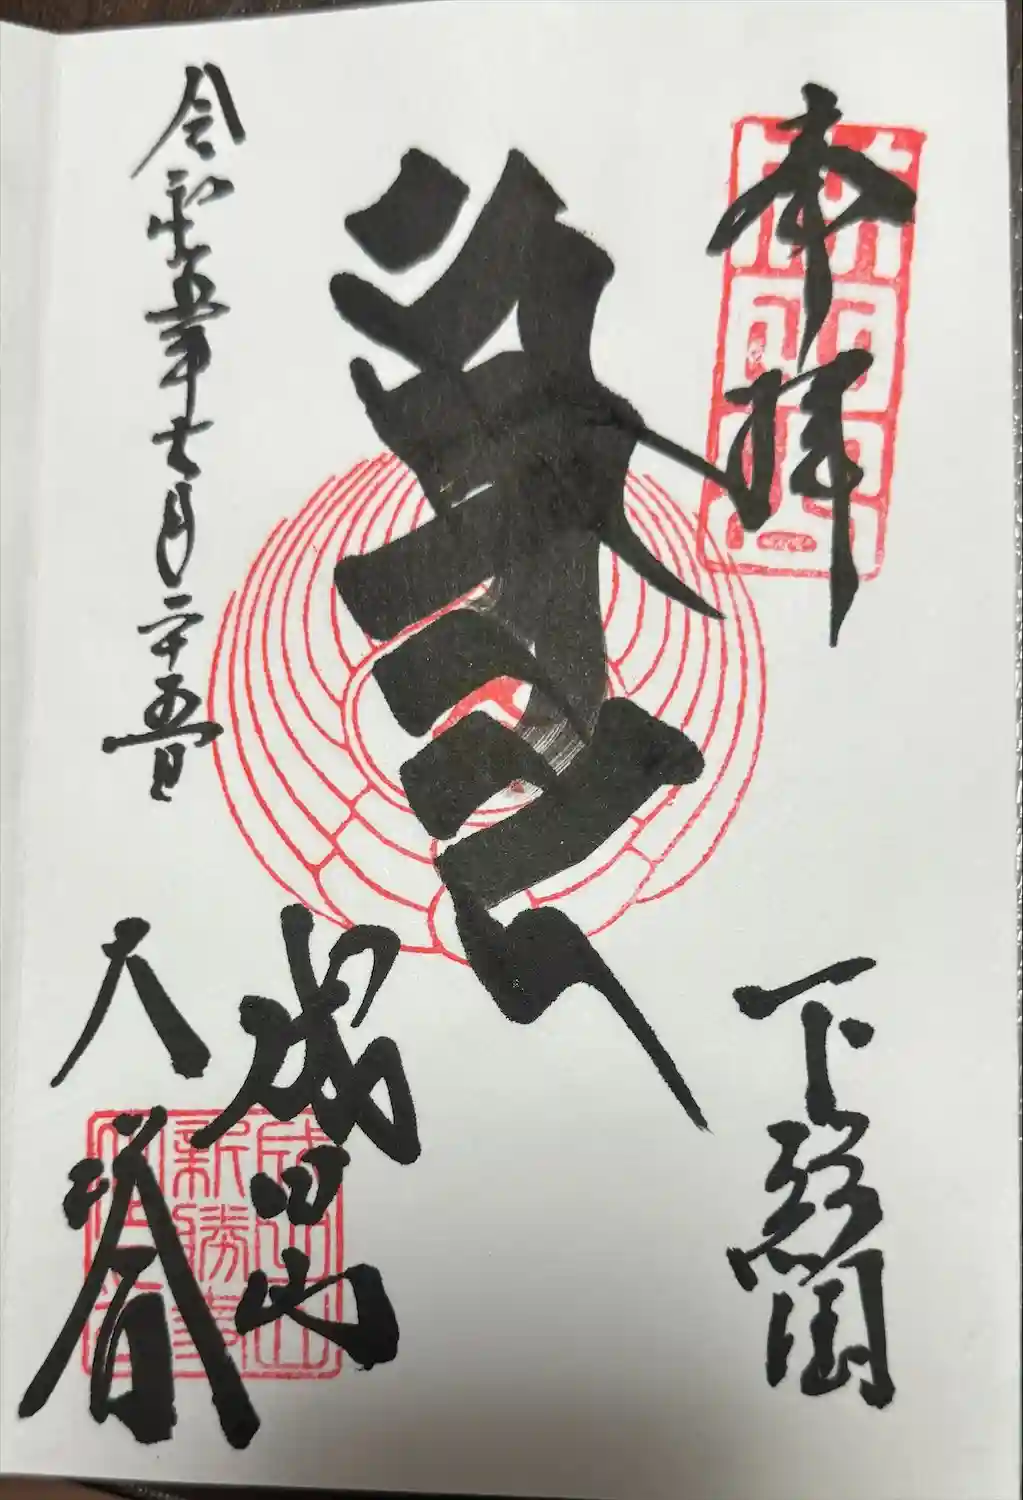 奉拝
下総国
成田山
大塔
令和五年十一月二十五日
成田山
新勝寺